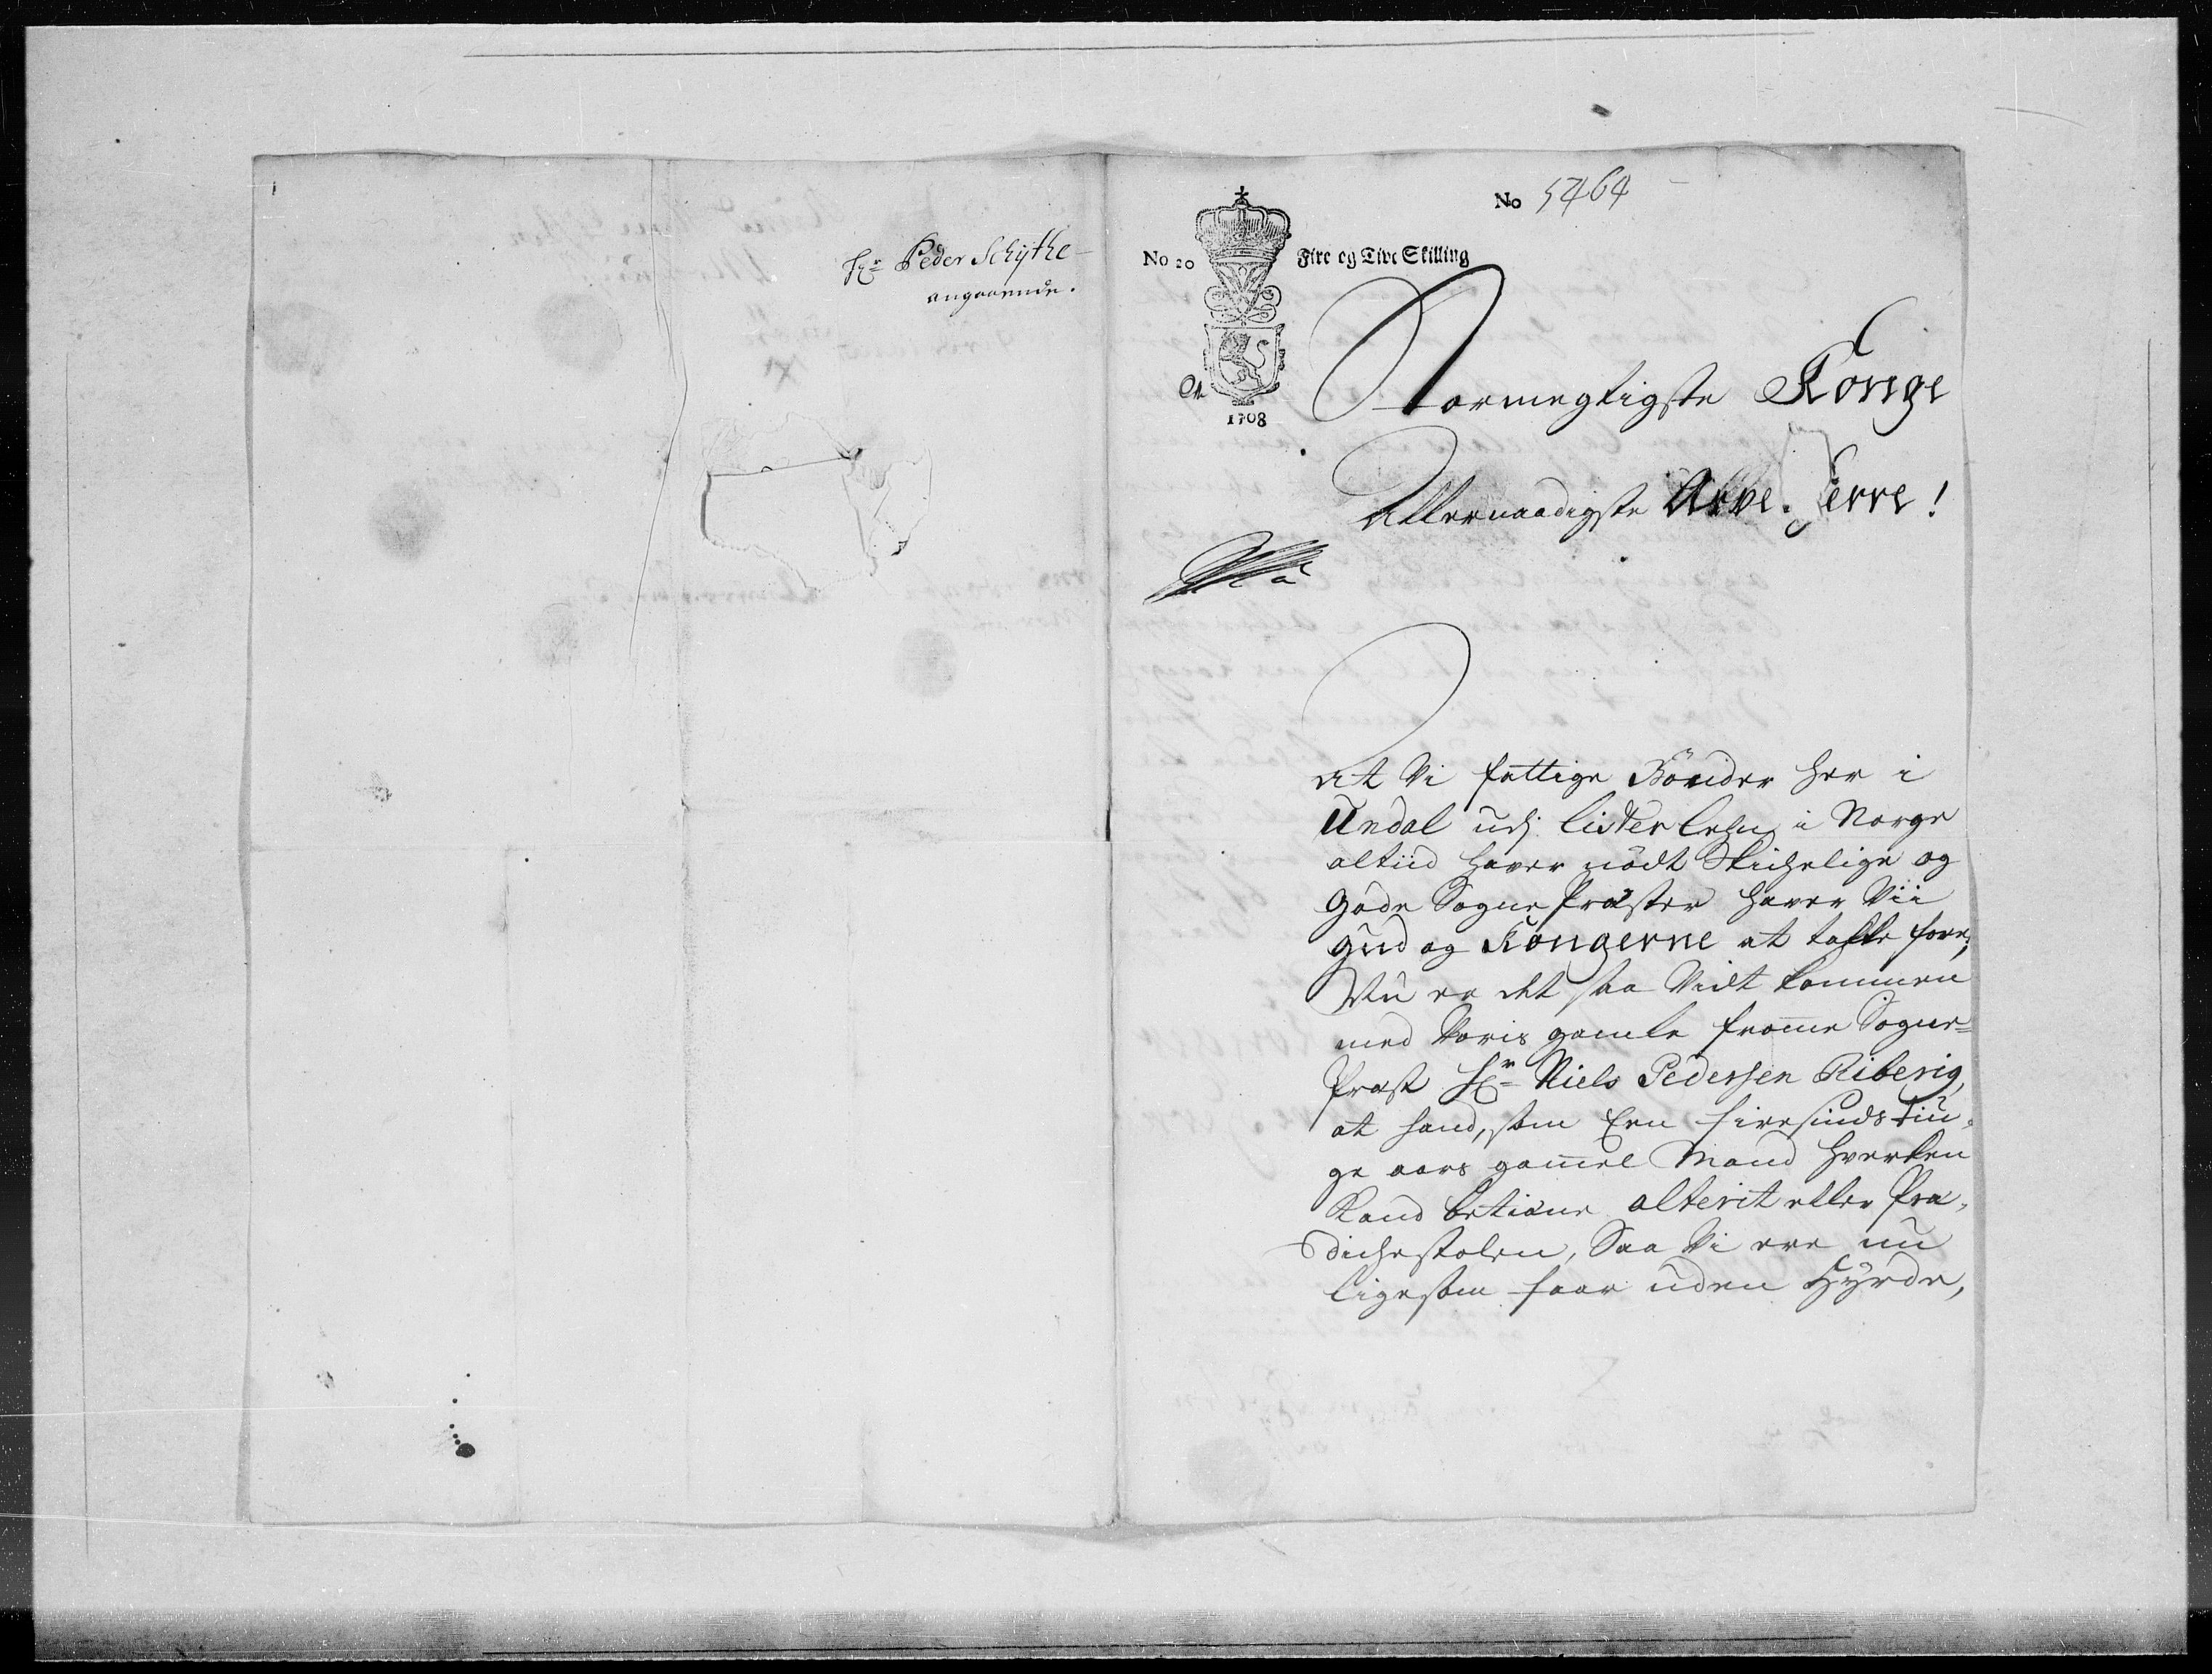 Hr Peder Schÿthe
angaaende.
No 5464
No 20
Fire og Tive Skilling
1708
Stormegtigste Konge
Allernaadigste Arve. Herre!
At Vi fattige Bönder her i
Undal udj Lister Lehn i Norge
altiid haver nödt Skichelige og
gode Sogne Præster haver Vii
Gud og Kongerne at takke fore,
Nu er det saa Vidt kommen
med Voris gamle fromme Sogne=
Præst Hr Niels Pedersen Riberig,
at hand, som Een fiiresindstiu,
ge aars gammel Mand hverken
Kand betiene alterit eller Præ,
dichestolen, Saa Vi ere nu
ligesom faar uden Hyrde,